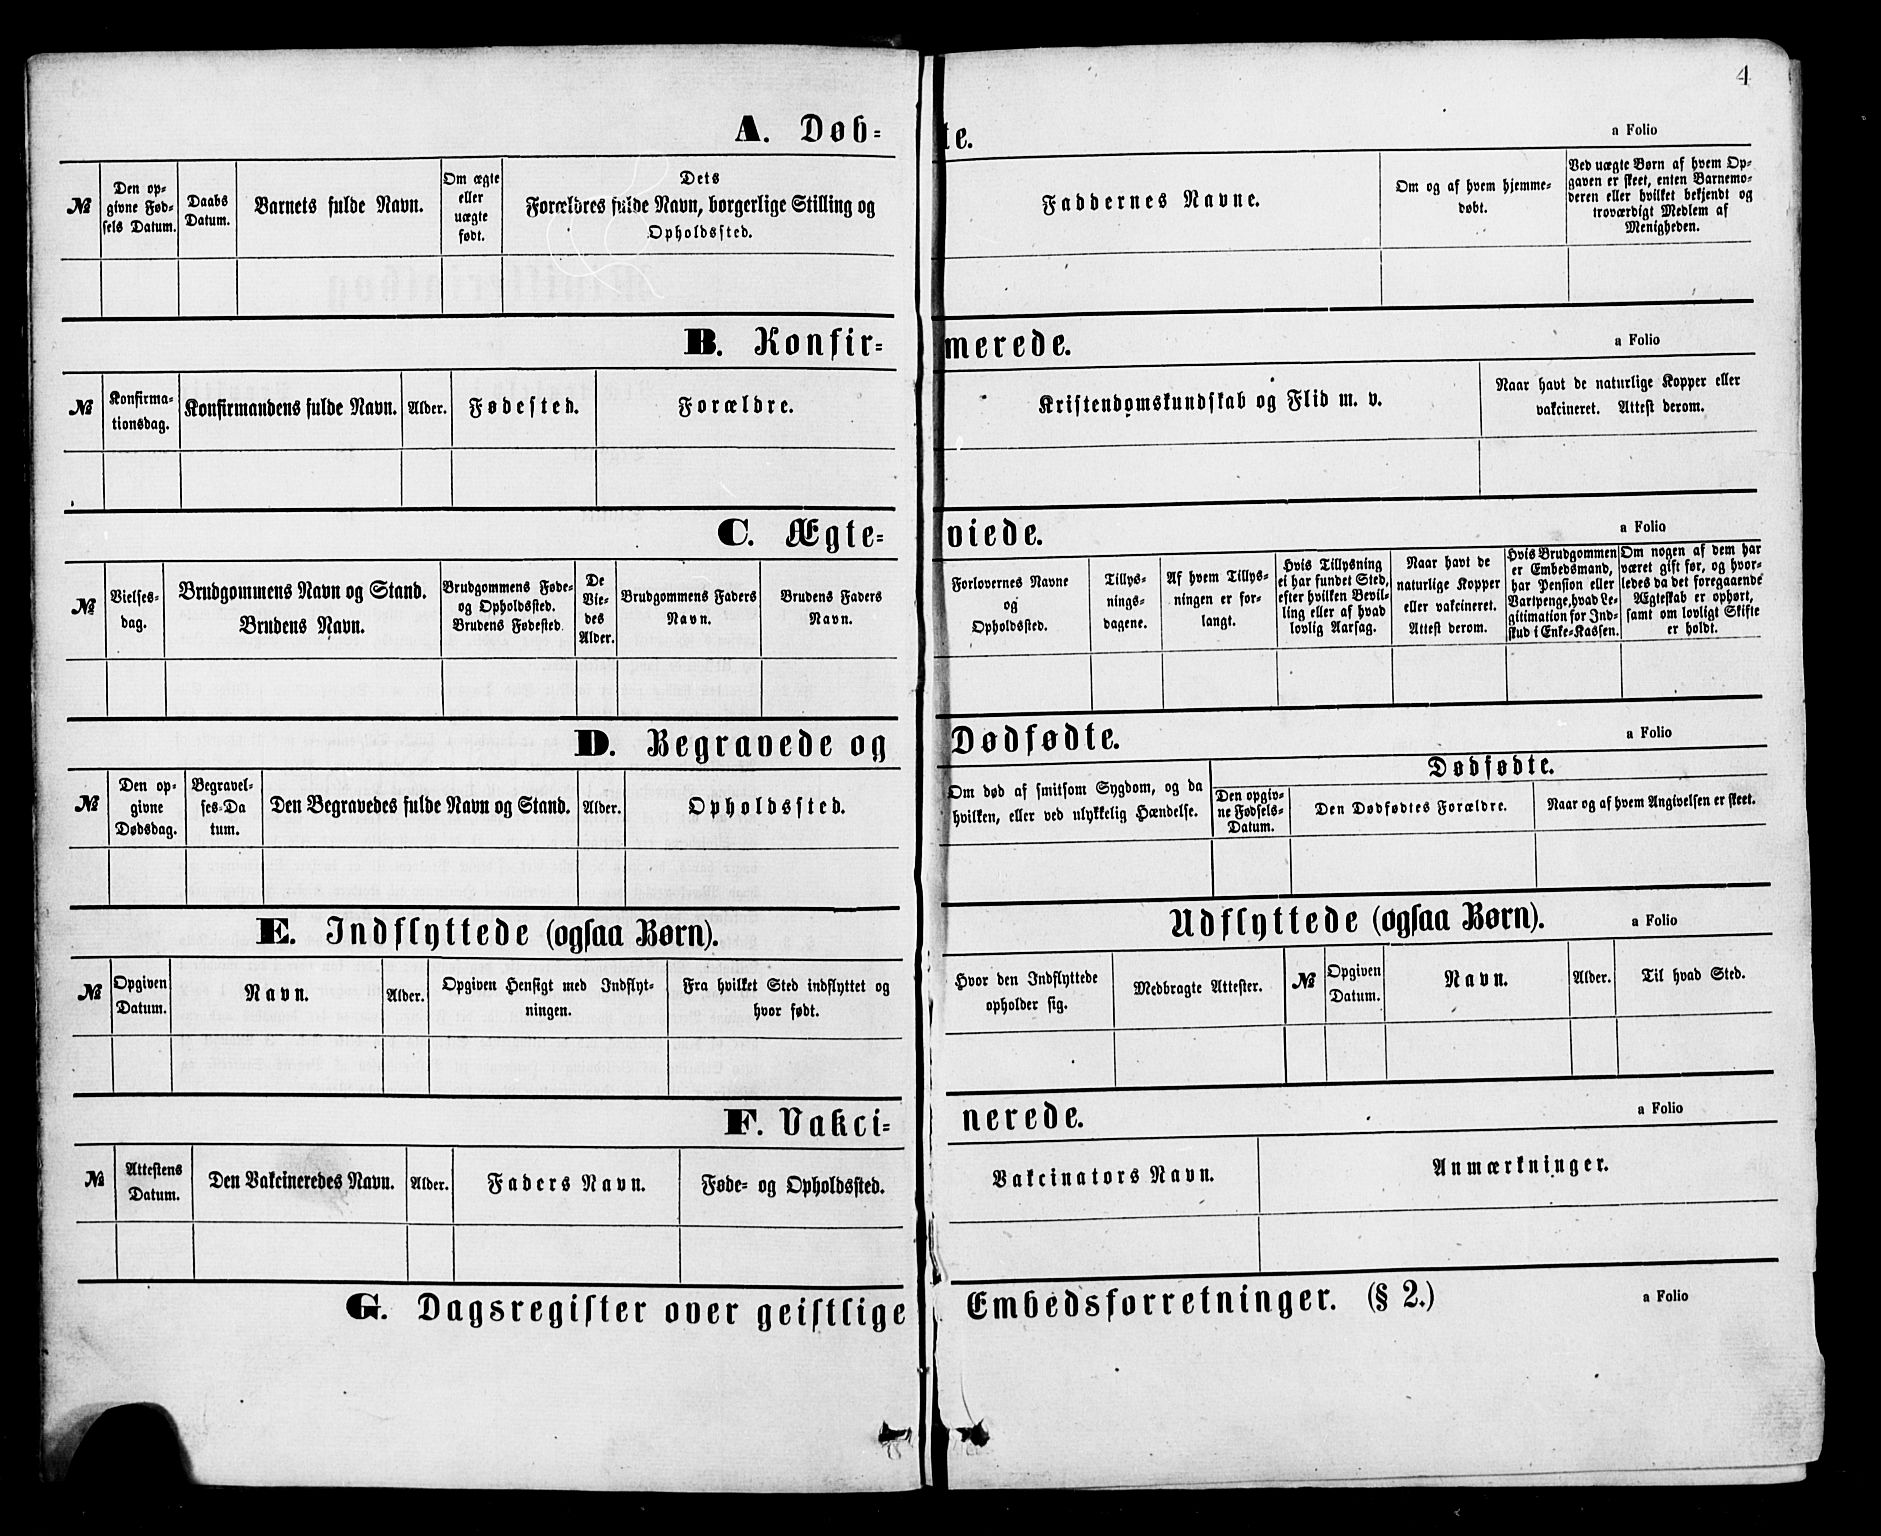 4
A. Døb-
te.
a Folio
№
Den op-
givne Fød-
sels Datum.
Daabs
Datum.
Barnets fulde Navn.
Om ægte
eller
uægte
født.
Dets
Forældres fulde Navn, borgerlige Stilling og
Opholdssted.
Faddernes Navne.
Om og af hvem hjemme-
døbt.
Ved uægte Børn af hvem Op-
gaven er skeet, enten Barnemo-
deren eller hvilket bekjendt og
troværdigt Medlem af
Menigheden.
B. Konfir-
merede.
a Folio
№
Konfirma-
tionsdag.
Konfirmandens fulde Navn.
Alder.
Fødested.
Forældre.
Kristendomskundskab og Flid m. v.
Naar havt de naturlige Kopper eller
vakcineret. Attest derom.
C. Ægte-
viede.
a Folio
№
Vielses-
dag.
Brudgommens Navn og Stand.
Brudens Navn.
Brudgommens Føde-
og Opholdssted.
Brudens Fødested.
De
Vie-
des
Alder.
Brudgommens Faders
Navn.
Brudens Faders
Navn.
Forlovernes Navne
og
Opholdssted.
Tillys-
nings-
dagene.
Af hvem Tillys-
ningen er for-
langt.
Hvis Tillysning
ei har fundet Sted,
efter hvilken Bevil-
ling eller af hvad
lovlig Aarsag.
Naar havt de
naturlige Kopper
eller vakcineret.
Attest derom.
Hvis Brudgommen
er Embedsmand,
har Pension eller
Vartpenge, hvad Le-
gitimation for Ind-
skud i Enke-Kassen.
Om nogen af dem har
været gift før, og hvor-
ledes da det foregaaende
Ægteskab er ophørt,
samt om lovligt Skifte
er holdt.
D. Begravede og
Dødfødte.
a Folio
№
Den op-
givne
Dødsdag.
Begravel-
ses-Da
tum.
Den Begravedes fulde Navn og Stand.
Alder.
Opholdssted.
Om død af smitsom Sygdom, og da
hvilken, eller ved ulykkelig Hændelse.
Dødfødte.
Den opgiv-
ne Fødsels-
Datum.
Den Dødfødtes Forældre.
Naar og af hvem Angivelsen er skeet.
E. Indflyttede (ogsaa Børn).
Udflyttede (ogsaa Børn).
a Folio
№
Opgiven
Datum.
Navn.
Alder.
Opgiven Hensigt med Indflyt-
ningen.
Fra hvilket Sted indflyttet og
hvor født.
Hvor den Indflyttede
opholder sig.
Medbragte Attester.
№
Opgiven
Datum.
Navn.
Alder.
Til hvad Sted.
F. Vakci-
nerede.
a Folio
№
Attestens
Datum.
Den Vakcineredes Navn.
Alder.
Faders Navn.
Føde- og Opholdssted.
Vakcinators Navn.
Anmærkninger.
G. Dagsregister over geistlige
Embedsforretninger. (§ 2.)
a Folio